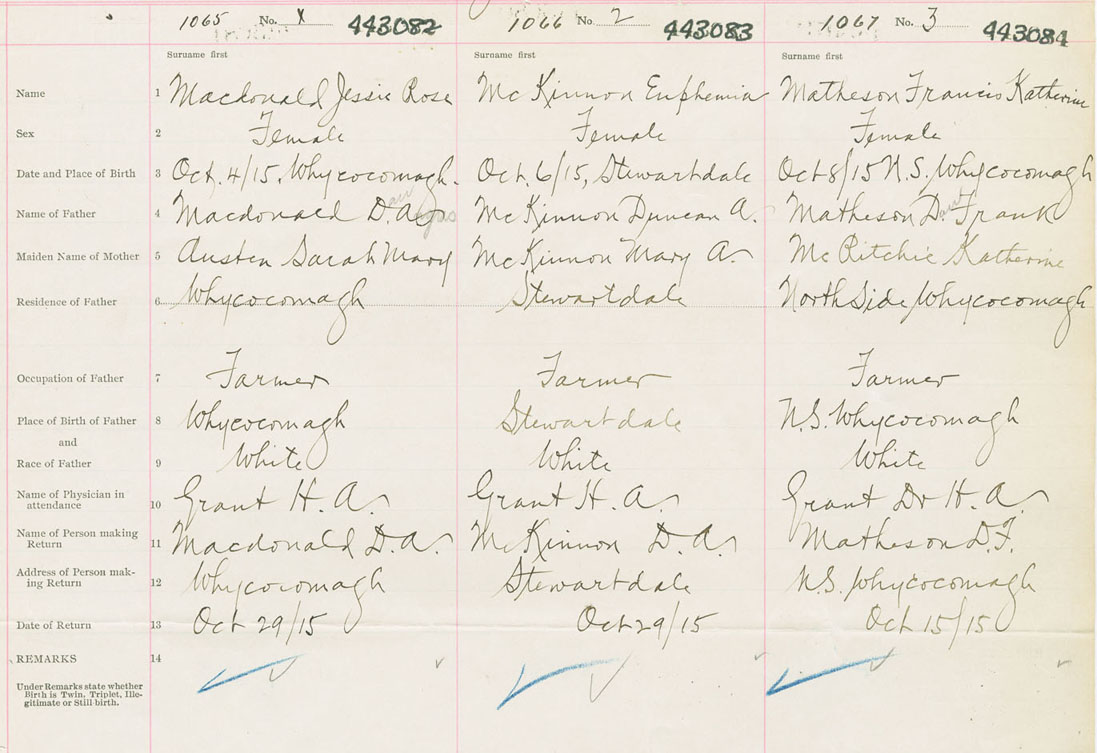 1065 No. 1 443082 1066 No. 2 443083 1067 No. 3 443084
Surname first Surname first Surname first
Name 1 Macdonald Jessie Rose Mc Kinnon Euphemia Matheson Francis Katherine
Sex 2 Female Female Female
Date and Place of Birth 3 Oct. 4/15, Whycocomagh. Oct. 6/15, Stewartdale Oct 8/15 N.S. Whycocomagh
Name of Father 4 Macdonald D. A. Mc Kinnon Duncan A. Matheson D. Frank
Maiden Name of Mother 5 Austen Sarah Mary Mc Kinnon Mary A. Mc Ritchie Katherine
Residence of Father 6 Whycocomagh Stewartdale North Side Whycocomagh
Occupation of Father 7 Farmer Farmer Farmer
Place of Birth of Father 8 Whycocomagh Stewartdale N.S. Whycocomagh
and
Race of Father 9 White White White
Name of Physician in
attendance 10 Grant H. A. Grant H. A. Grant Dr H. A.
Name of Person making
Return 11 Macdonald D. A. Mc Kinnon D. A. Matheson D. F.
Address of Person mak-
ing Return 12 Whycocomagh Stewartdale N.S. Whycocomagh
Date of Return 13 Oct 29/15 Oct 29/15 Oct 15/15
REMARKS 14
Under Remarks state whether
Birth is Twin, Triplet, Ille-
gitimate or Still-birth.